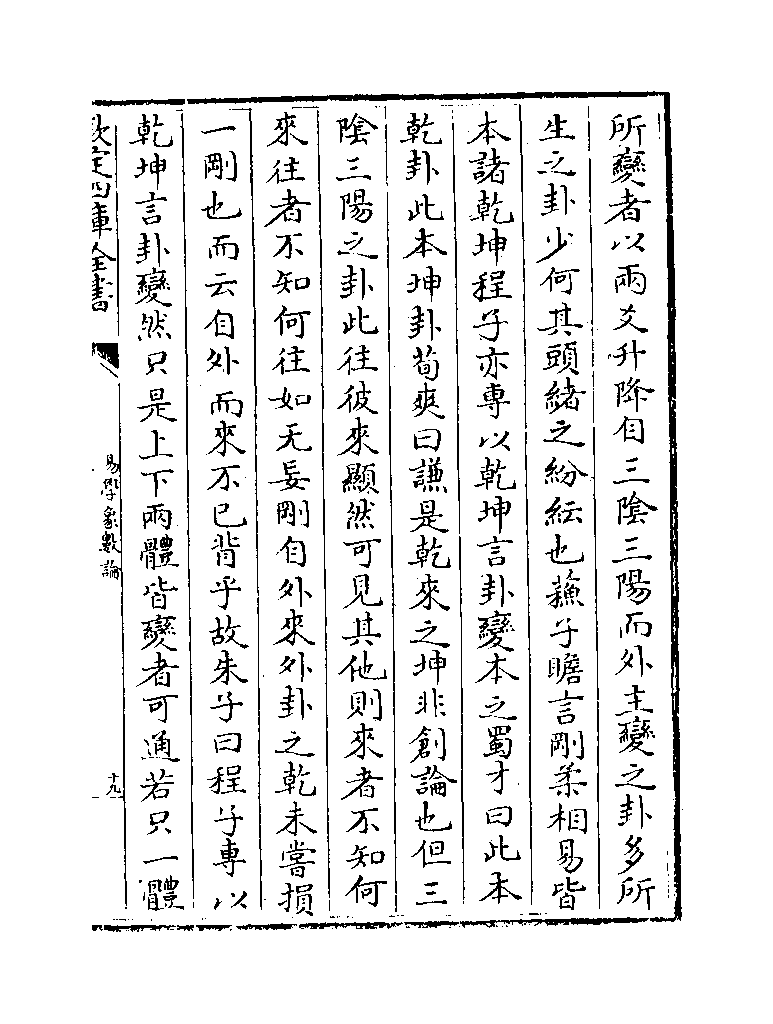 所變者以兩爻升降自三陰三陽而外主變之卦多所
生之卦少何其頭緒之紛紜也蘓子瞻言剛柔相易皆
本諸乾坤程子亦專以乾坤言卦變本之蜀才曰此本
乾卦此本坤卦荀爽曰謙是乾來之坤非創論也但三
陰三陽之卦此往彼來顯然可見其他則來者不知何
來往者不知何往如无妄剛自外來外卦之乾未嘗損
一剛也而云自外而來不已背乎故朱子曰程子專以
乾坤言卦變然只是上下兩體皆變者可通若只一體
欽定四庫全書
易學象數論
十九